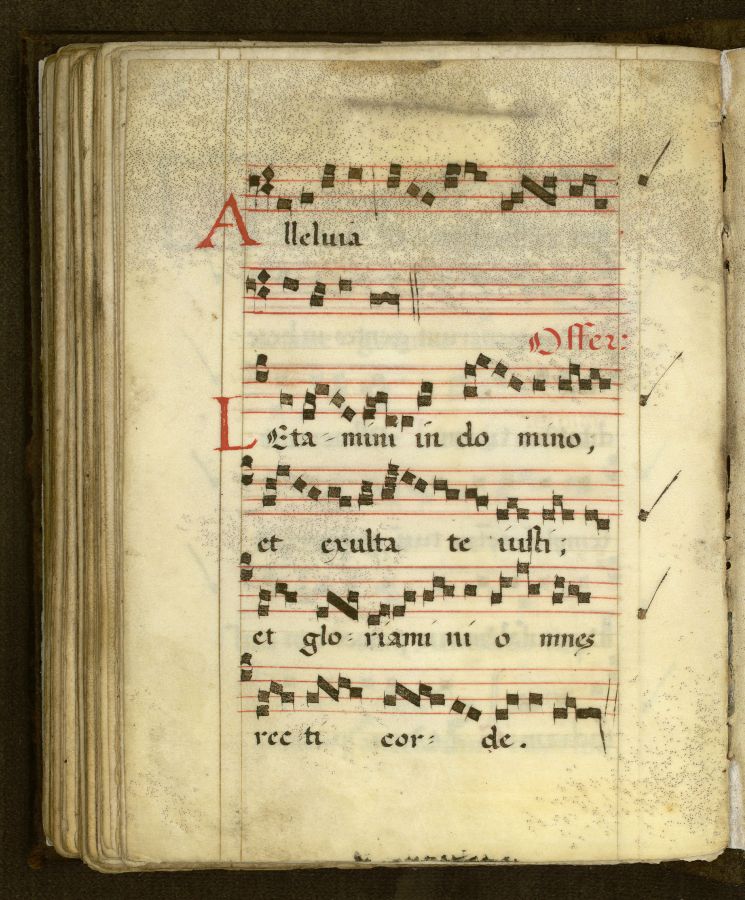 Alleluia
Offer:
LEta - mini in do mino,
et exulta te iusti,
et glo - riami ni o mnes
rec ti cor - de.